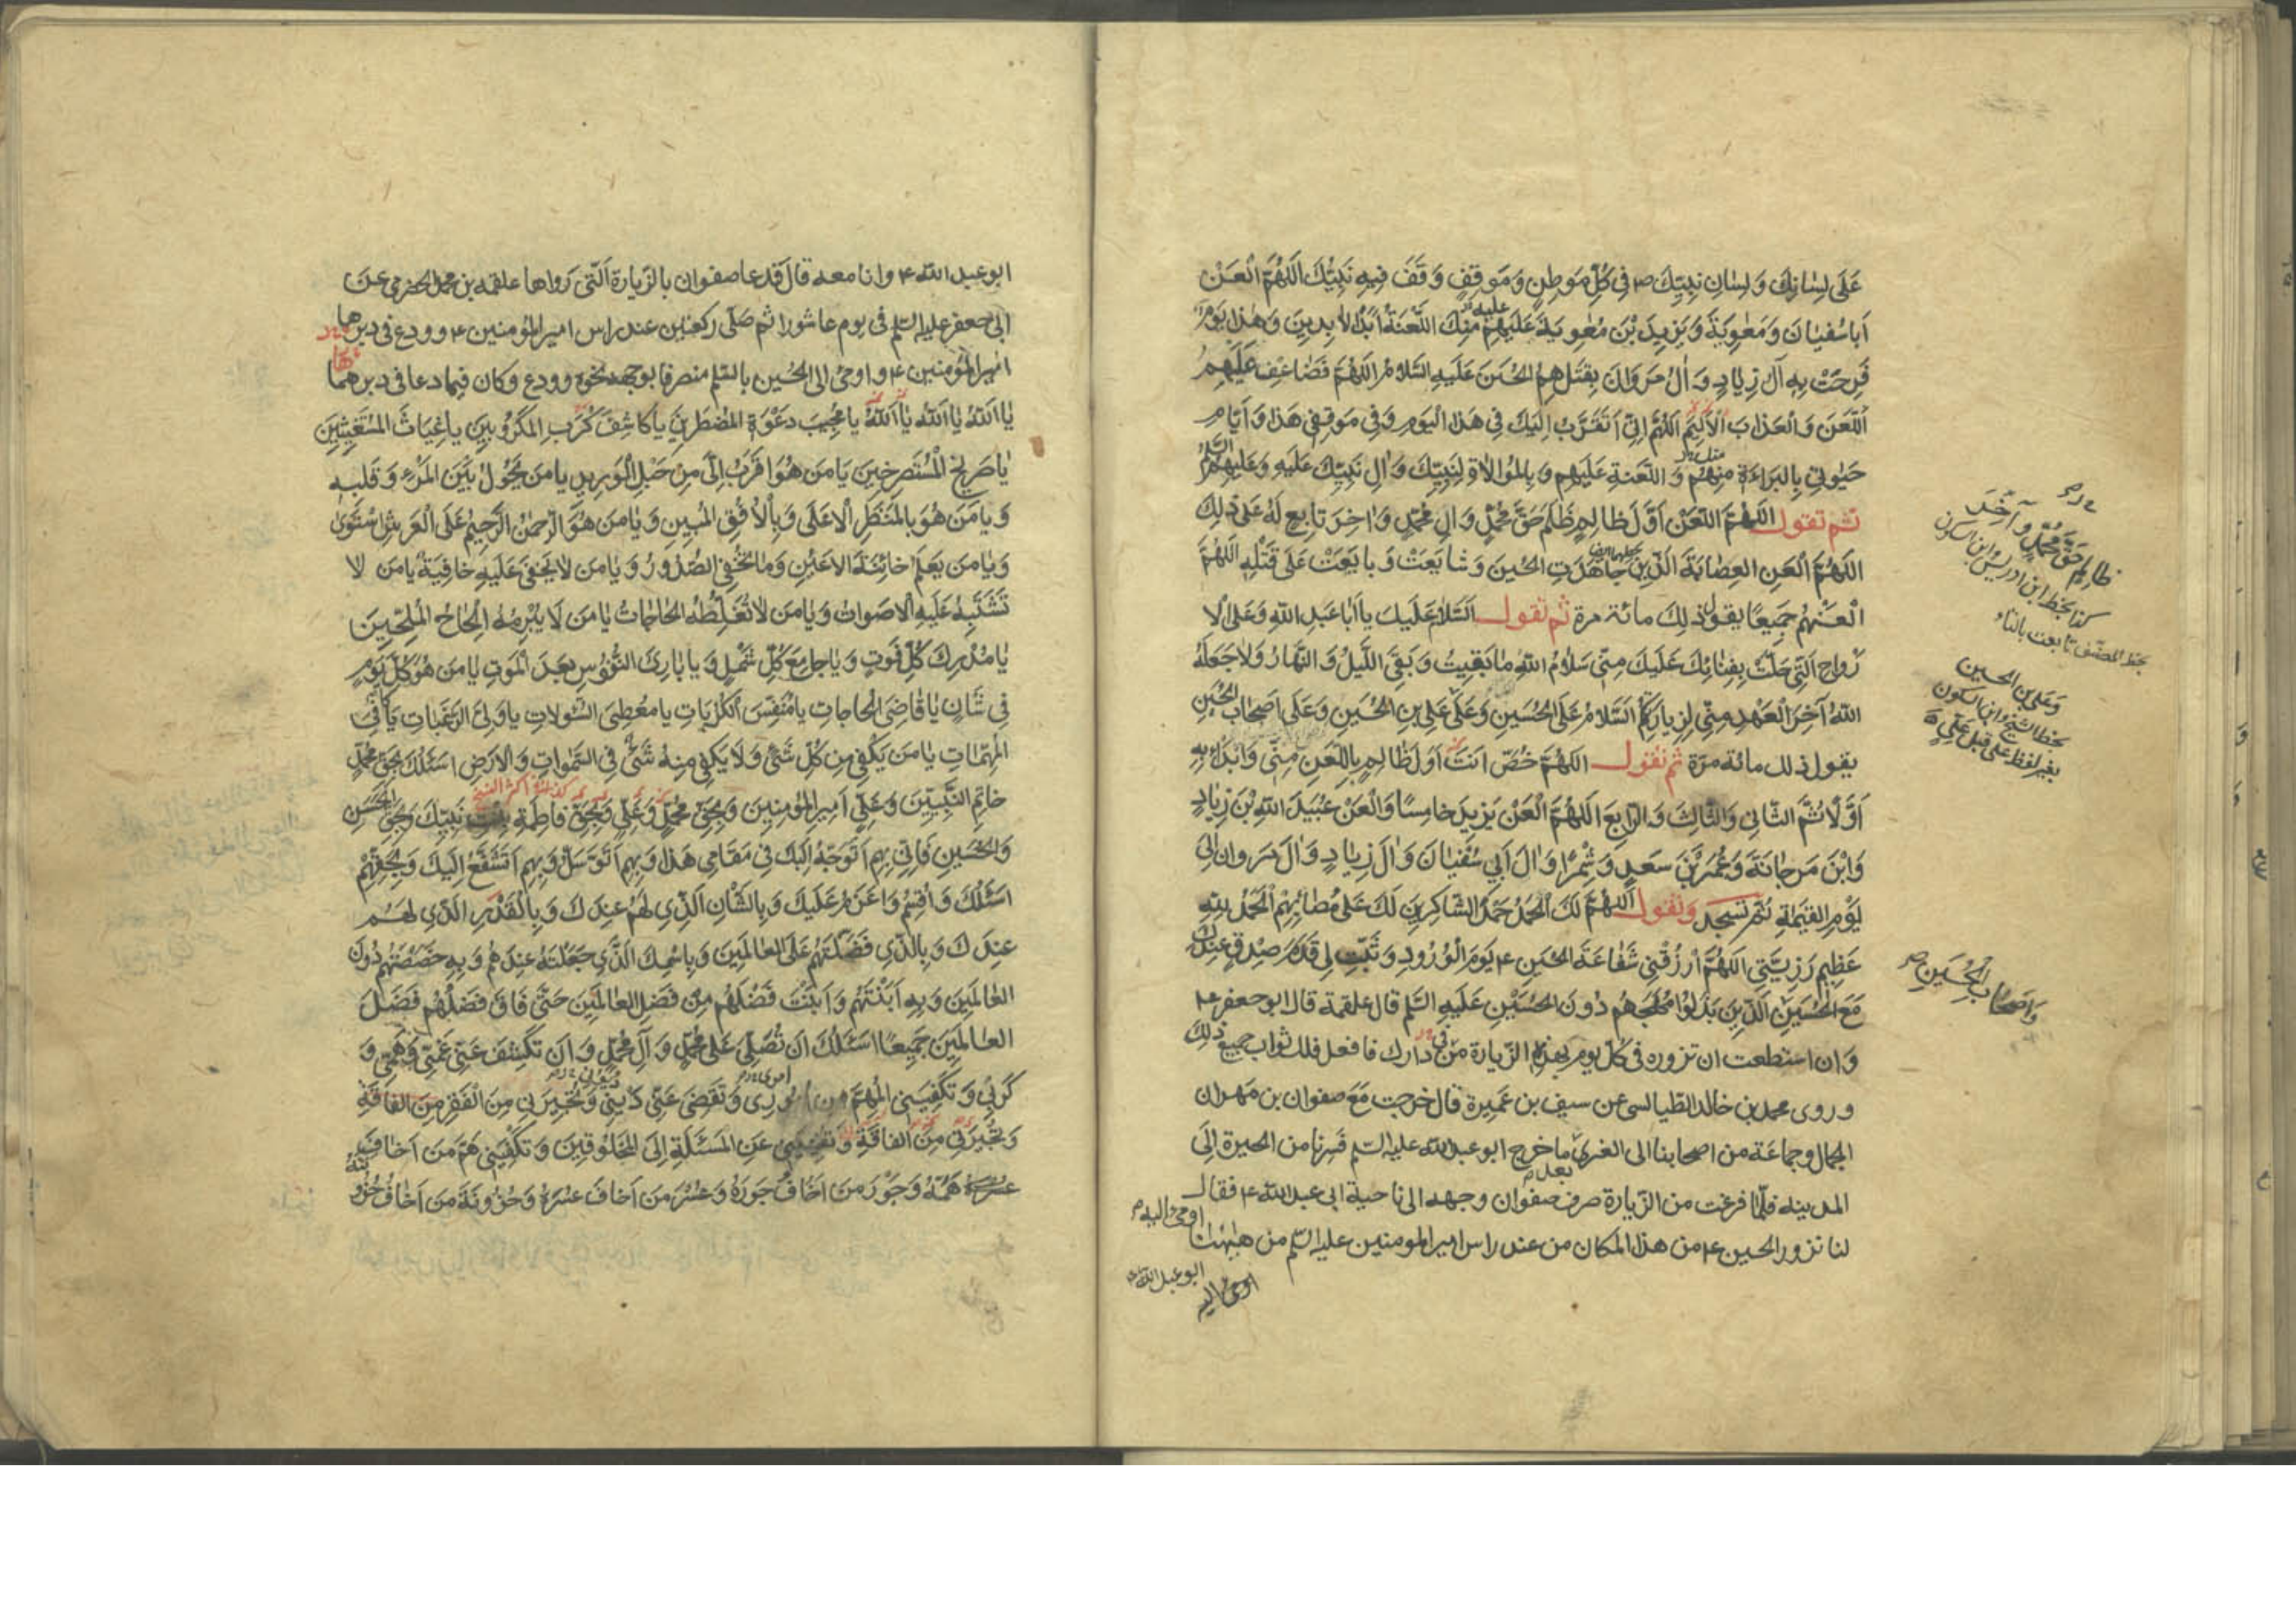 عَلَى لِسَانِكَ وَلِسَانِ نَبِيِّكَ ص فِى كُلِّ مَوطِنٍ وَمَوقِفٍ وَقَفَ فِيهِ نَبِيُّكَ اَللّهُمَّ الْعَنْ
اَبَا سُفيَانَ وَمَعٰوِيَةَ وَيَزِيدَ بْنَ مُعٰوِيَةَ عَلَيهِمْ مِنكَ اللَّعنَةُ اَبَدَ الْاٰبِدِينَ وَهٰذَا يَومٌ
فَرِحَتْ بِهِ آلُ زِيَادٍ وَاٰلُ مَروَانَ بِقَتلِهِمُ الحُسَينَ عَلَيهِ السَّلَامُ اَللّهُمَّ فَضَاعِف عَلَيهِمُ
اللَّعنَ وَالعَذَابَ الْاَلِيمَ اَللّهُمَّ اِنِّى اَتَقَرَّبُ اِلَيكَ فِى هَذَا اليَومِ وَفِى مَوقِفِى هَذَا وَاَيَّامِ
حَيٰوتِى بِالبَرَاءَةِ مِنهُمْ وَاللَّعنَةِ عَلَيهِم وَبِالمُوَالَاةِ لِنَبِيِّكَ وَاٰلِ نَبِيِّكَ عَلَيهِ وَعَلَيهِمُ السّلم
ثم تقول اللّهُمَّ العَنْ اَوَّلَ ظَالِمٍ ظَلَمَ حَقَّ مُحَمَّدٍ وَاٰلِ مُحَمَّدٍ وَاٰخِرَ تَابِعٍ لَهُ عَلَى ذٰلِكَ
اَللّهُمَّ الْعَنِ العِصَابَةَ الَّذِينَ جَاهَدَتِ الحُسَينَ وَشَايَعَتْ وَبَايَعَتْ عَلَى قَتْلِهِ اَللّهُمَّ
الْعَنْهُم جَمِيعًا يقول ذلك مائة مرة ثم تقول اَلسَّلَامُ عَلَيكَ يَا اَبَا عَبدِ اللّهِ وَعَلَى الْاَ
رْوَاحِ الَّتِى حَلَّتْ بِفِنَائِكَ عَلَيكَ مِنِّى سَلَامُ اللّهِ مَا بَقِيتُ وَبَقِىَ اللَّيلُ وَالنَّهَارُ وَلَا جَعَلَهُ
اللّهُ آخِرَ العَهدِ مِنِّى لِزِيَارَتِكُم اَلسَّلَامُ عَلَى الحُسَينِ وَعَلَى عَلِىِّ بنِ الحُسَينِ وَعَلَى اَصحَابِ الحُسَينِ
يقول ذلك مائة مرة ثم تقول اَللّهُمَّ خُصَّ اَنتَ اَوَّلَ ظَالِمٍ بِاللَّعنِ مِنِّى وَابْدَأْ بِهِ
اَوَّلًا ثُمَّ الثَّانِى وَالثَّالِثَ وَالرَّابِعَ اَللّهُمَّ الْعَنْ يَزِيدَ خَامِسًا وَالْعَنْ عُبَيدَ اللّهِ بْنَ زِيَادٍ
وَابْنَ مَرجَانَةَ وَعُمَرَ بْنَ سَعدٍ وَشِمْرًا وَاٰلَ اَبِى سُفيَانَ وَاٰلَ زِيَادٍ وَاٰلَ مَروَانَ اِلَى
يَوْمِ القِيٰمَةِ ثم تسجد وتقول اَللّهُمَّ لَكَ الْحَمْدُ حَمْدَ الشَّاكِرِينَ لَكَ عَلَى مُصَابِهِمْ اَلْحَمْدُ لِلّهِ
عَظِيمِ رَزِيَّتِى اَللّهُمَّ ارْزُقْنِى شَفَاعَةَ الحُسَينِ ع يَومَ الْوُرُودِ وَثَبِّتْ لِى قَدَمَ صِدقٍ عِندَكَ
مَعَ الحُسَينِ الَّذِينَ بَذَلُوا مُهَجَهُم دُونَ الحُسَيْنِ عَلَيهِ السّلم قال علقمة قال ابو جعفر ع
وان استطعت ان تزوره فى كل يوم بهذه الزيارة من دارك فافعل فلك ثواب جميع ذلك
وروى محمد بن خالد الطيالسى عن سيف بن عميرة قال خرجت مع صفوان بن مهران
الجمال وجماعة من اصحابنا الى الغرى ما خرج ابو عبد الله عليه السّلم فسرنا من الحيرة الى
المدينه فلمّا فرغت من الزيارة صرف صفوان وجهه الى ناحية ابى عبد الله ع فقال
لنا تزور الحسين ع من هذا المكان من عند راس امير المومنين عليه السّلم من هيهنا
اومئ اليه
ابو عبد الله
ظالِمٍ حَقَّ مُحَمَّدٍ وآخِرَ
كذا بخط ابن ادريس وابن السكون
بخط المصنّف تابعت بالتاء
وَعَلِى بن الحسين
بخط الشيخ وابن السكون
بغير لفظ على قبل عَلِىّ
وَاَصحَابِ الحُسَينِ
ابو عبد الله ع وانا معه قال فدعا صفوان بالزيارة الّتى رواها علقمه بن محمد الحضرمى عن
ابى جعفر عليه السّلم فى يوم عاشورا ثم صلّى ركعتين عند راس امير المؤمنين ع وودع فى دبرهما
امير المؤمنين ع واومئ الى الحسين بالسّلم منصرفا بوجهه نحوه وودع وكان فيما دعا فى دبرهما
يَا اَللّهُ يَا اَللّهُ يَا اَللّهُ يَا مُجِيبَ دَعْوَةِ المُضطَرِّينَ يَا كَاشِفَ كُرَبِ المَكرُوبِينَ يَا غِيَاثَ المُستَغِيثِينَ
يَا صَرِيخَ الْمُستَصرِخِينَ يَا مَن هُوَ اَقرَبُ اِلَىَّ مِنْ حَبْلِ الْوَرِيدِ يَا مَن يَحُولُ بَيْنَ المَرْءِ وَقَلبِهِ
وَيَا مَنَ هُوَ بِالمَنظَرِ الْاَعلَى وَبِالْاُفُقِ المُبِينِ وَيَا مَن هُوَ الرَّحمٰنُ الرَّحِيمُ عَلَى الْعَرشِ اسْتَوَىٰ
وَيَا مَن يَعلَمُ خَائِنَةَ الاَعيُنِ وَمَا تُخْفِى الصُّدُورُ وَيَا مَن لَا يَخفَىٰ عَلَيهِ خَافِيَةٌ يَا مَن لَا
تَشتَبِهُ عَلَيهِ الْاَصوَاتُ وَيَا مَن لَا تُغَلِّطُهُ الحَاجَاتُ يَا مَن لَا يُبْرِمُهُ اِلحَاحُ المُلِحّينَ
يَا مُدْرِكَ كُلِّ فَوتٍ وَيَا جَامِعَ كُلِّ شَمْلٍ وَيَا بَارِئَ النُّفُوسِ بَعدَ الْمَوتِ يَا مَن هُوَ كُلَّ يَومٍ
فِى شَانٍ يَا قَاضِىَ الحَاجَاتِ يَا مُنَفِّسَ الكُرُبَاتِ يَا مُعطِىَ السُّؤلَاتِ يَا وَلِىَّ الرَّغَبَاتِ يَا كَافِىَ
المُهِمَّاتِ يَا مَن يَكْفِى مِن كُلِّ شَىْءٍ وَلَا يَكفِى مِنهُ شَىْءٌ فِى السَّمٰوَاتِ وَالْاَرضِ اَسئَلُكَ بِحَقِّ مُحَمَّدٍ
خَاتِمِ النَّبِيِّينَ وَعَلِىٍّ اَمِيرِ المُؤمِنِينَ وَبِحَقِّ مُحَمَّدٍ وَعَلِىٍّ وَبِحَقِّ فَاطِمَةَ بِنْتِ نَبِيِّكَ وَبِحَقِّ الحَسَنِ
وَالحُسَينِ فَاِنِّى بِهِم اَتَوَجَّهُ اِلَيكَ فِى مَقَامِى هَذَا وَبِهِم اَتَوَسَّلُ وَبِهِم اَتَشَفَّعُ اِلَيكَ وَبِحَقِّهِمْ
اَسئَلُكَ وَاُقسِمُ وَاَعزِمُ عَلَيكَ وَبِالشَّأنِ الَّذِى لَهُم عِندَكَ وَبِالقَدْرِ الَّذِى لَهُم
عِندَكَ وَبِالَّذِى فَضَّلتَهُم عَلَى العَالَمِينَ وَبِاسْمِكَ الَّذِى جَعَلْتَهُ عِندَهُم وَبِهِ خَصَصْتَهُم دُونَ
العَالَمِينَ وَبِهِ اَبَنْتَهُم وَاَبَنْتَ فَضْلَهُم مِنْ فَضلِ العَالَمِينَ حَتَّى فَاقَ فَضلُهُم فَضلَ
العَالَمِينَ جَمِيعًا اَسئَلُكَ اَن تُصَلِّىَ عَلَى مُحَمَّدٍ وَآلِ مُحَمَّدٍ وَاَن تَكشِفَ عَنِّى غَمِّى وَهَمِّى وَ
كَربِى وَتَكْفِيَنِى المُهِمَّ مِن اُمُورِى وَتَقضِىَ عَنِّى دَينِى وَتُجِيرَنِى مِنَ الفَقرِ مِنَ الفَاقَةِ
وَتُجِيرَنِى مِنَ الفَاقَةِ وَتُغنِيَنِى عَنِ المَسئَلَةِ اِلَى المَخلُوقِينَ وَتَكْفِيَنِى هَمَّ مَن اَخَافُ
هَمَّهُ وَجَوْرَ مَن اَخَافُ جَورَهُ وَعُسْرَ مَن اَخَافُ عُسرَهُ وَحُزُونَةَ مَن اَخَافُ حُزُونَتَهُ